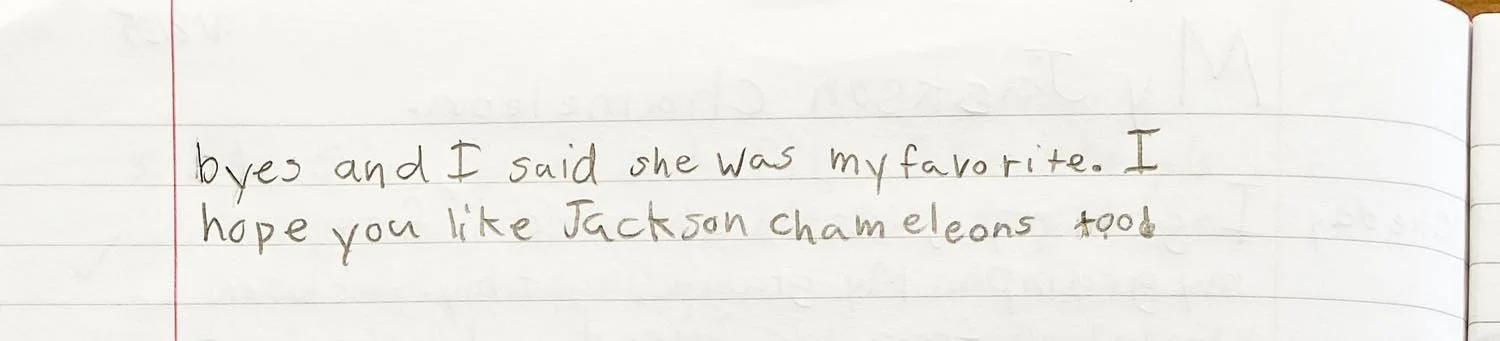 byes and I said she was my favorite. I
hope you like Jackson chameleons too!